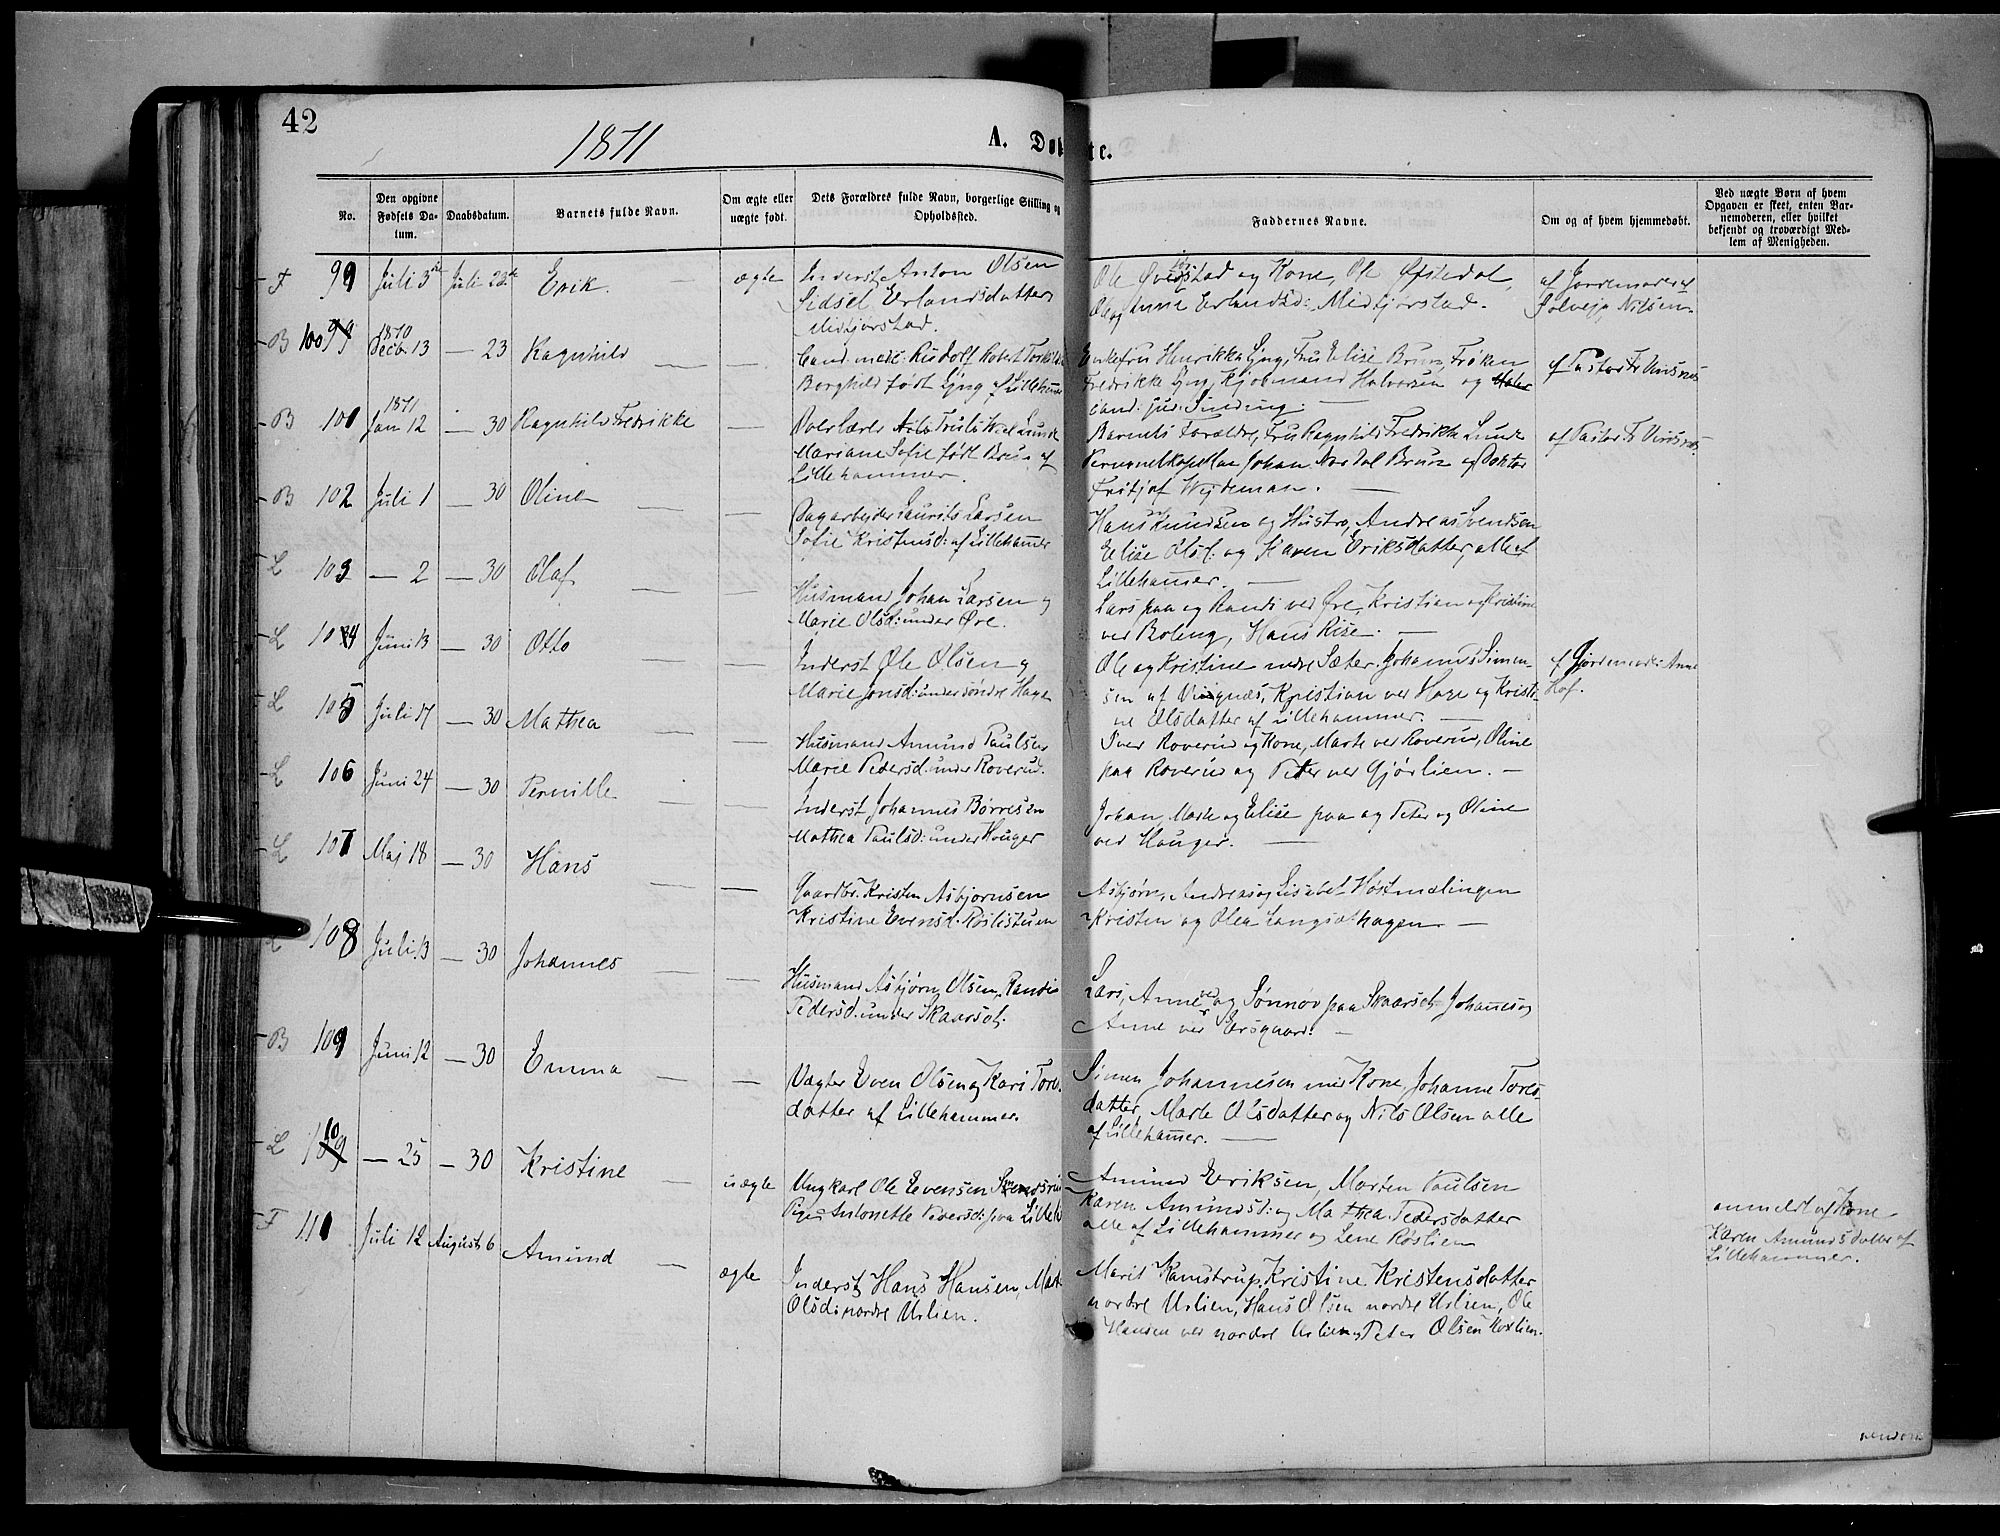 42
1871
A. Døbte.
No.
Den opgivne Fødsels Datum.
Daabsdatum.
Barnets fulde Navn.
Om ægte eller uægte født.
Dets Forældres fulde Navn, borgerlige Stilling og Opholdssted.
Faddernes Navne.
Om og af hvem hjemmedøbt.
Ved uægte Børn af hvem Opgaven er skeet, enten Barnemoderen, eller hvilket bekjendt og troværdigt Medlem af Menigheden.
F 99 Juli 3 Juli 23 Erik — ægte
Inderst Anton Olsen
Sidsel Erlandsdatter
Midtjørstad.
Ole og Kone, Ole Øfstedal,
Ole og Anne Erlandsd: Midtjørstad.
af Jordemoder
Solveja Nilsen
B 100 1870 Decb. 13 — 23 Ragnhild — —
Cand. med: Rudolf Robert
Borghild født Lyng af Lillehammer
Enkefru Henrikka Lyng, Fru Elise Brun, Frøken
Fredrikke Lyng, Kjøbmand Halvorsen og
cand: jur: Sinding. —
af Pastor Fr.
B 101 1871 Jan 12 — 30 Ragnhild Fredrikke —
Overlærer
Mariane Sofie født Brun af
Lillehammer.
Barnets Forældre, Fru Ragnhild Fredrikke Lunde
Personelkapellan Johan Nordal Brun og Doktor
Fritjof Wejdeman. —
af Pastor Fr.
B 102 Juli 1 — 30 Oline — —
Dagarbejder Laurits Larsen
Sofie Kristensd: af Lillehamer
Hans Knudsen og Hustro, Andreas Svendsen
Elise Olsd. og Karen Eriksdatter, alle af
Lillehamer. —
L 103 — 2 — 30 Olaf — —
Husmand Johan Larsen og
Marie Olsd: under Øre.
Lars paa og Randi ved Øre, Kristian og Kristine
ved Boleng, Hans Rise. —
L 104 Juni 13 — 30 Otto — —
Inderst Ole Olsen og
Marie Jonsd: under søndre Hage
Ole og Kristine nedre Sæter. Johannes Simen-
sen af Vignæs, Kristian ved Hage og Kristi-
ne Olsdatter af Lillehammer. —
af Gjordemoder Anne
Hof.
L 105 Juli 17 — 30 Mathea — —
Husmand Amund Paulsen
Marie Pedersd: under Roverud.
Iver Roverud og Kone, Marte ved Roverud, Oline
paa Roverud og Peter ved Gjørlien. —
L 106 Juni 24 — 30 Pernille — —
Inderst Johannes Børresen
Mathea Paulsd: under Houger
Johan, Marte og Elise paa og Peter og Oline
ved Houger. —
L 107 Maj 18 — 30 Hans — —
Gaardbr. Kristen Asbjørnsen
Kristine Evensd. Roslistuen
Asbjørn, Andreas og Lisabet Høstmælingen
Kristen og Olea Langsethagen —
L 108 Juli 13 — 30 Johannes — —
Husmand Asbjørn Olsen, Randi
Pedersd: under Skaarset.
Lars, Anne ved og Sønnøv paa Skaarset Johanes og
Anne ved Ersgaard. —
B 109 Juni 12 — 30 Emma — —
Vægter Even Olsen og Kari Tores-
datter af Lillehammer
Simen Johannesen med Kone, Johanne Tores-
datter, Marte Olsdatter og Nils Olsen alle
af Lillehamer. —
L 110 — 25 — 30 Kristine — uægte
Ungkarl Ole Evensen
Pige Antonette Pedersd: paa Lilleh
Amund Eriksen, Morten Paulsen
Karen Amundsd: og Mathea Pedersdatter
alle af Lillehammer og Lene Røslien
anmeldt af Kone
Karen Amundsdatter af
Lillehammer.
F 111 Juli 12 August 6 Amund — ægte
Inderst Hans Hansen, Marte
Olsd: nordre Urlien.
Marit Kamstrup, Kristine Kristensdatter
nordre Urlien, Hans Olsen nordre Urlien, Ole
Hansen ved nordre Urlien og Peter Olsen